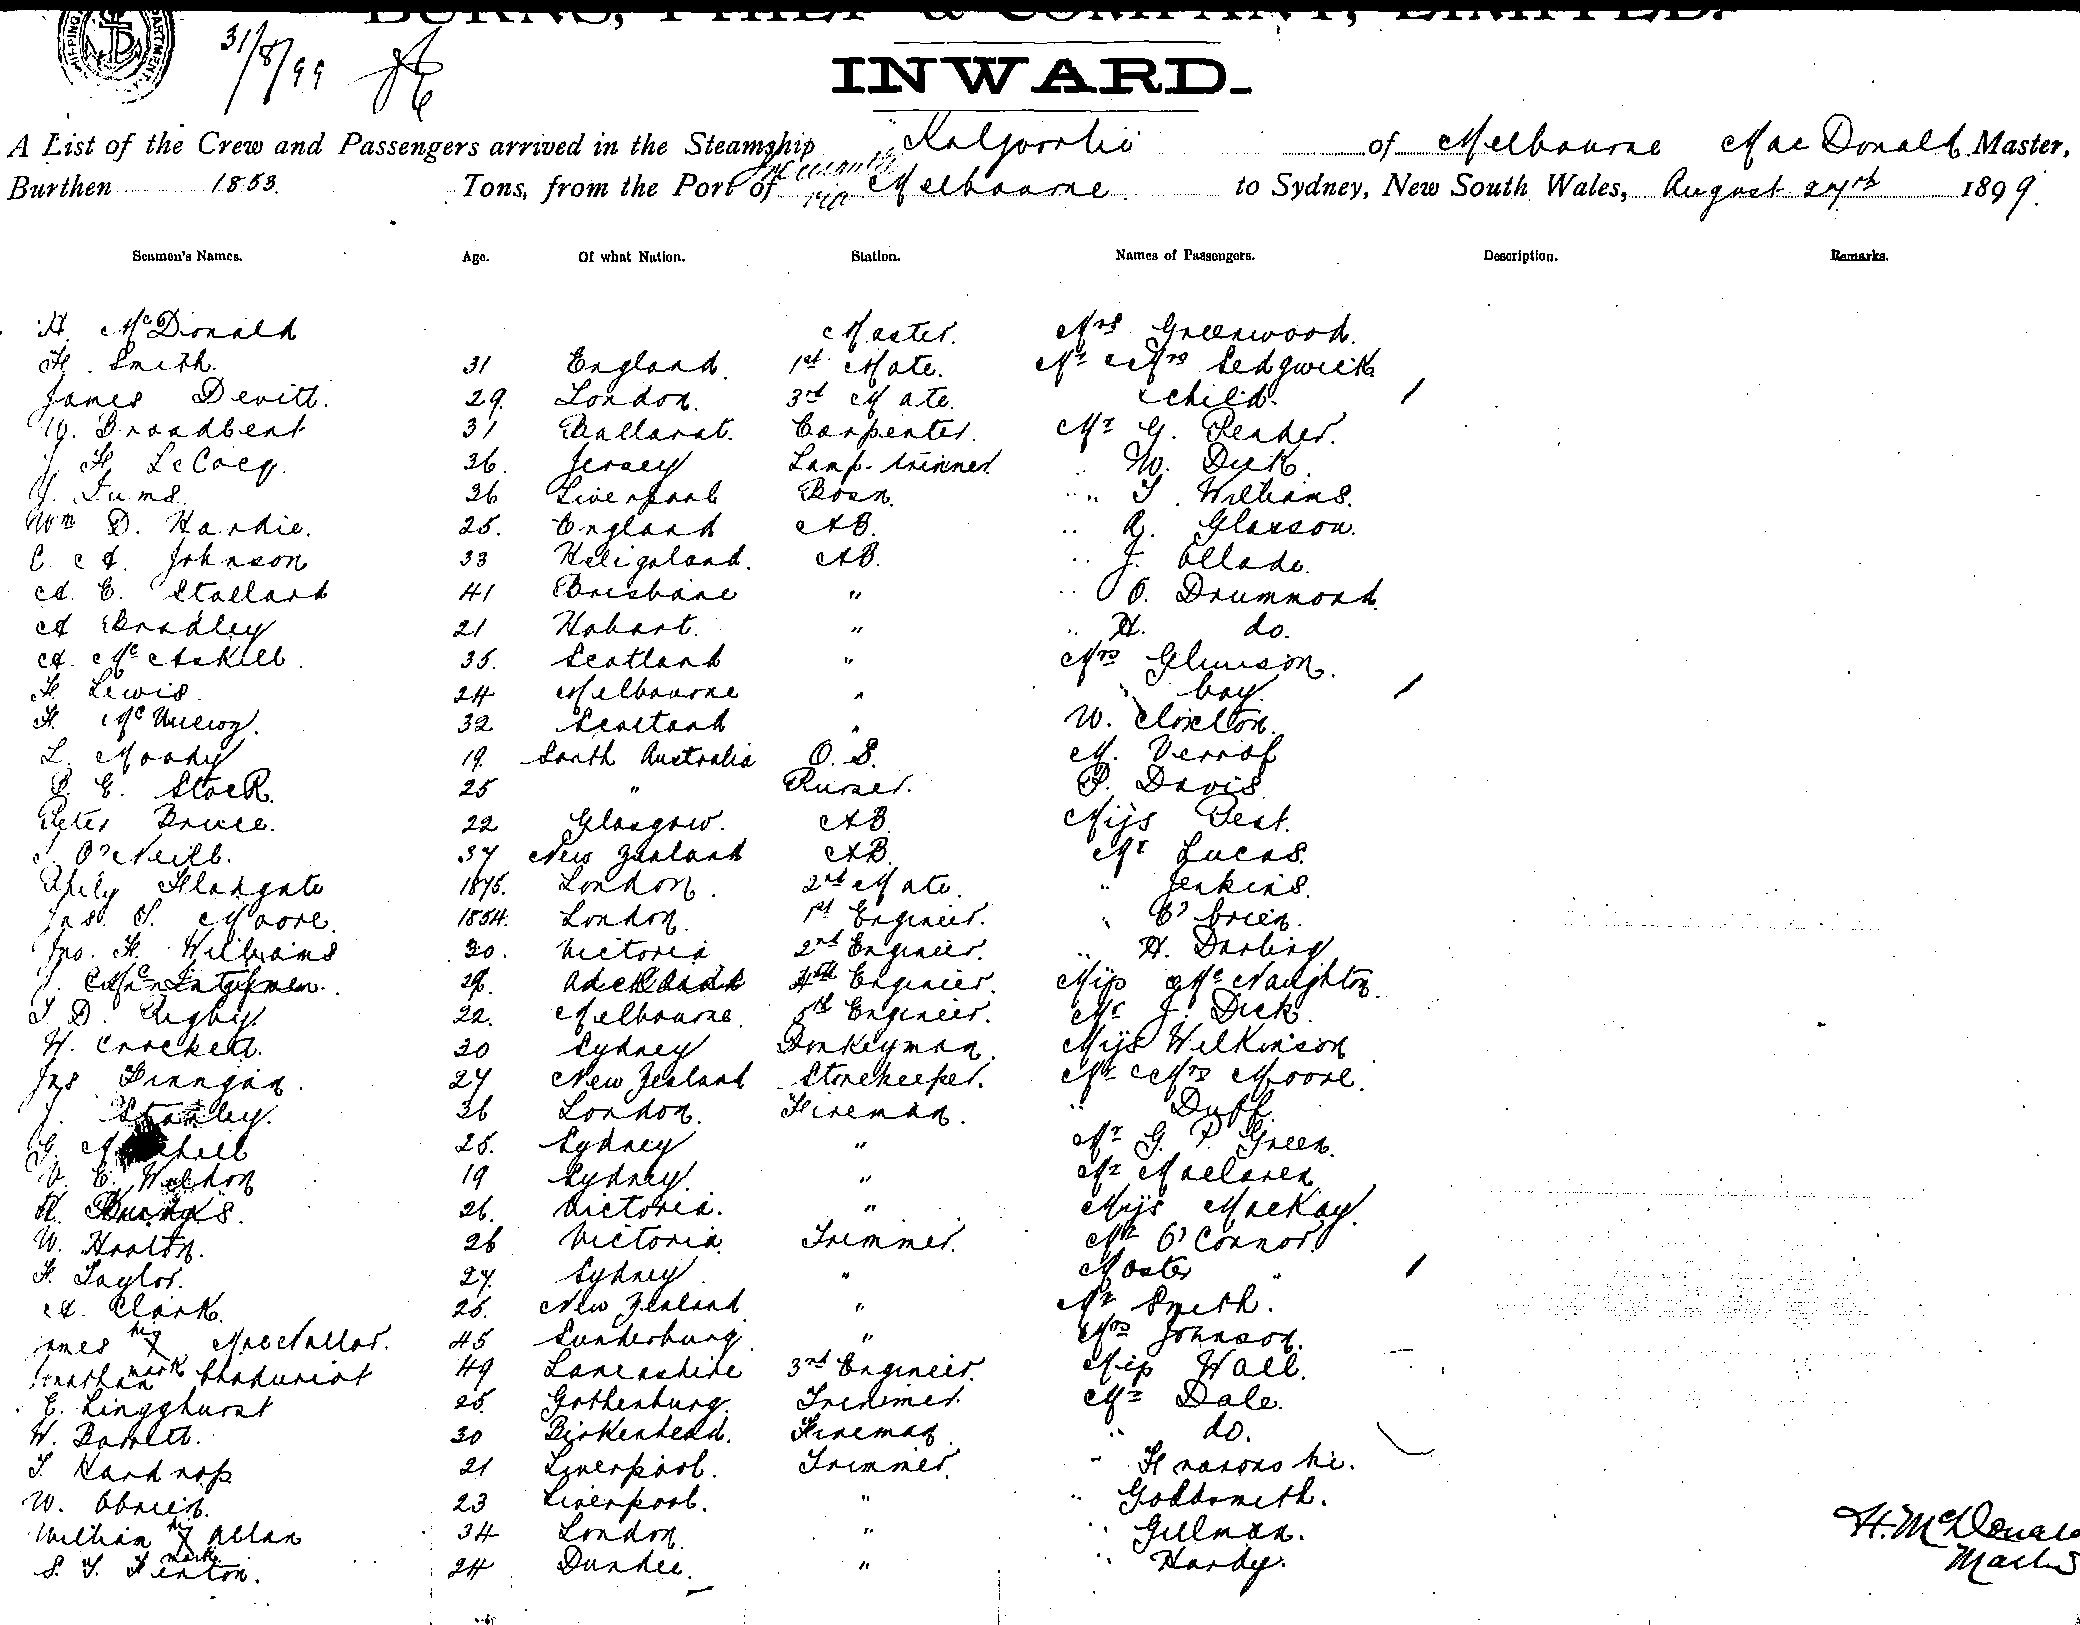 BURNS, PHILP & COMPANY, LIMITED.
31/8/99
INWARD.
A List of the Crew and Passengers arrived in the Steamship Kalgoorlie of Melbourne MacDonald Master,
Burthen 1853 Tons, from the Port of Fremantle via Melbourne to Sydney, New South Wales, August 27th 1899.
Seamen's Names. Age. Of what Nation. Station. Names of Passengers. Description. Remarks.
H McDonald Master. Mrs Greenwood.
H. Smith. 31 England. 1st Mate. Mr & Mrs Sedgwick
James Devitt. 29. London. 3rd Mate. & child.
W. Broadbent 31 Ballarat. Carpenter. Mr G. Pender.
J. H. LeCocq. 36. Jersey Lamp-trimmer " W. Dick.
J. 36 Liverpool Bosn. " T. Williams.
Wm D. Hardie. 25. England AB. " Glasson.
C. A. Johnson 33 Heligoland. AB. " J.
A. E. Stallard 41 Brisbane " " O. Drummond.
A Bradley 21 Hobart. " " H. do.
A. McAskill. 35. Scotland " Mrs
H. Lewis. 24 Melbourne " " boy.
H. 32 Scotland " W. Cloxton.
L. Moody 19. South Australia O. S. M.
E. Stock. 25 " Purser. P. Davis
Peter Bruce. 22 Glasgow. AB. Miss
O'Neill. 37 New Zealand AB. Mr Lucas.
Fladgate 1875. London. 2nd Mate. " Jenkins.
Jas. S. Moore. 1854. London. 1st Engineer. " O'brien.
Jno. H. Williams 30. Victoria 2nd Engineer. " H. Darling
J. 4th Engineer. Miss McNaughton.
T D. Rigby. 22. Melbourne. 5th Engineer. Mr J. Dick.
W. Crockett. 30 Sydney Donkeyman. Miss Wilkinson
Jas Finnigan. 27 New Zealand Storekeeper. Mr & Mrs Moore.
J. Stanley. 26 London. Fireman. " Duff.
G. 25. Sydney " Mr G. P. Green.
V. E. Weldon 19 Sydney. " Mr Maclaren
H. 26. Victoria. " Miss MacKay.
W. 26 Victoria. Trimmer. Mr O'Connor.
H. Taylor. 27. Sydney " Master "
A. Clark. 25. New Zealand. " Mr Smith.
his X mark 45 " Mrs Johnson.
49 Lancashire 3rd Engineer. Miss Wall.
E. Lingghurst 25. Gothenburg. Trimmer. Mr Dale.
W. Barrett. 30 Birkenhead. Fireman. " do.
T. Hardrop 21 Liverpool. Trimmer. "
W. Obrien. 23 Liverpool. " " Goldsmith.
William his X mark Allan 34 London. " " Gillman.
S. T. Fenton. 24 Dundee. " " Hardy.
H. McDonald
Master